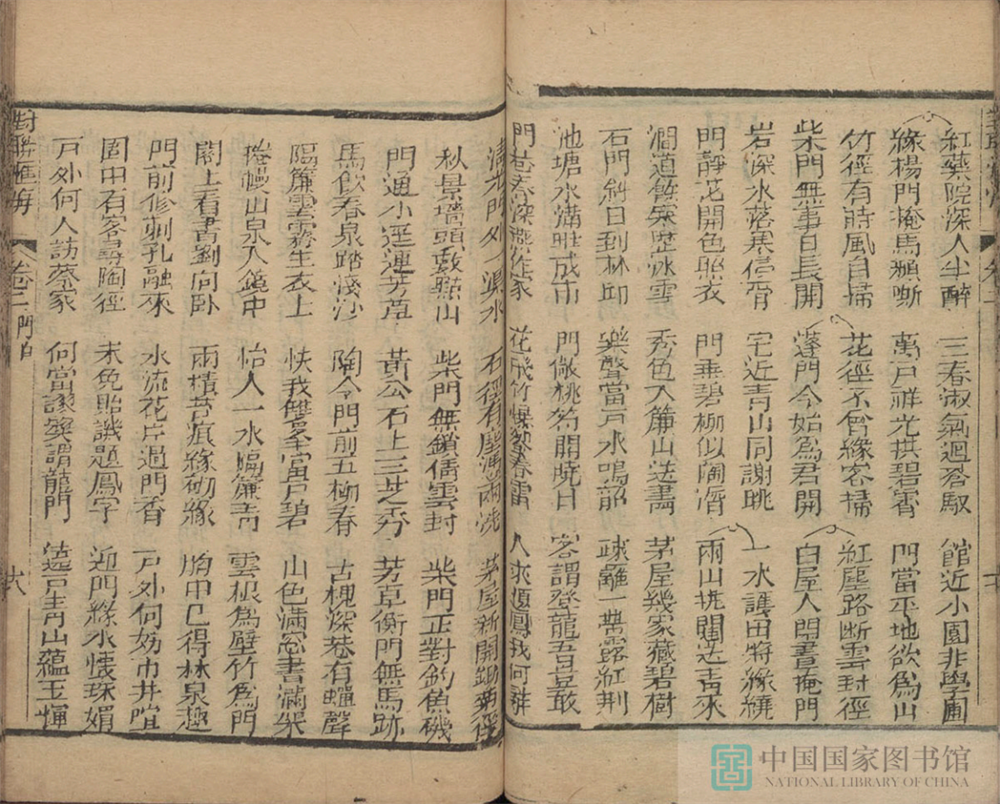 紅藥院深人半醉　三春淑氣迴　館近小園非學圃
綠楊門掩馬頻嘶　萬戶祥光拱碧霄　門當平地欲為山
竹徑有時風自掃　花徑不曾緣客掃　紅塵路斷雲封徑
柴門無事日長開　蓬門今始為君開　白屋人閒晝掩門
岩深水落寒侵骨　宅近青山同謝眺　一水護田將綠繞
門靜花開色照衣　門垂碧柳似陶潛　兩山排闥送青來
澗道餘寒歷冰雪　秀色入簾山送畫　茅屋幾家藏碧樹
石門斜日到林邱　樂聲當戶水鳴韶　疎籬一帶露紅荆
池塘水滿蛙成市　門倣桃符開曉日　客謂登龍吾豈敢
門巷春深燕作家　花飛竹爆發春雷　人來題鳳我何
門外一渠水　石徑有塵清雨洗　茅屋新開鋤菊徑
秋景墻頭數點山　柴門無鎖倩雲封　柴門正對釣魚磯
門通小逕連芳草　黃公石上三芝秀　芳草衡門無馬跡
馬飲春泉踏淺沙　陶令門前五柳春　古槐深巷有蟬聲
隔簾雲霧生衣上　快我雙峯當戶碧　山色滿窓書滿架
捲幔山泉入鏡中　怡人一水臨簾青　雲根為壁竹為門
閣上看書劉向卧　雨積苔痕緣砌綠　胸中已得林泉趣
門前修刺孔融來　水流花片過門香　戶外何妨市井喧
園中有客尋陶徑　未免貽譏題鳳字　近門綠水懷珠媚
戶外何人訪蔡家　何當讓契謂龍門　遶戶青山蘊玉輝
對聯匯海　卷二門白　六
中国国家图书馆
NATIONAL LIBRARY OF CHINA